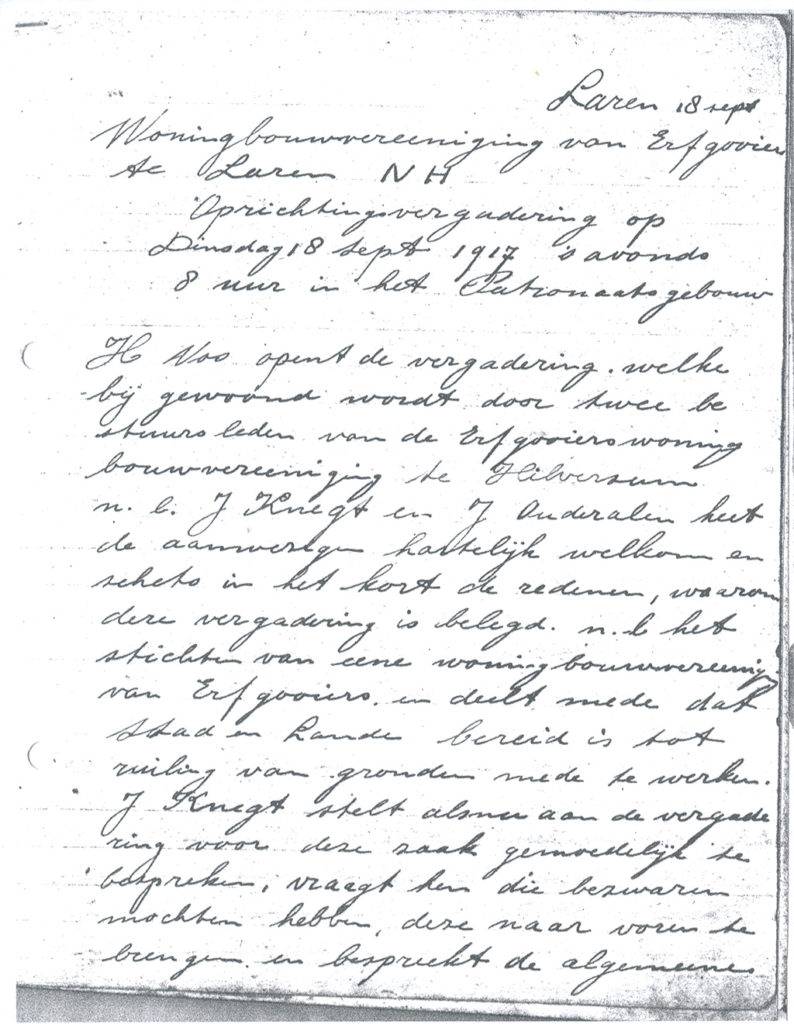 Laren 18 sept
Woningbouwvereeniging van Erfgooiers
te Laren NH
Oprichtingsvergadering op
Dinsdag 18 sept 1917 's avonds
8 uur in het Patronaatsgebouw
H Vos opent de vergadering. welke
bij gewoond wordt door twee be
stuursleden van de Erfgooierswoning
bouwvereeniging te Hilversum
n. l. J Knegt en J heet
de aanwezigen hartelijk welkom en
schets in het kort de redenen, waarom
deze vergadering is belegd. n. l het
stichten van eene woningbouwvereenig
van Erfgooiers. en deelt mede dat
Stad en Lande bereid is tot
ruiling van gronden mede te werken.
J Knegt stelt alsnu aan de vergade
ring voor deze zaak gemoedelijk te
bespreken, vraagt hen die bezwaren
mochten hebben, deze naar voren te
brengen. en bespreekt de algemeene